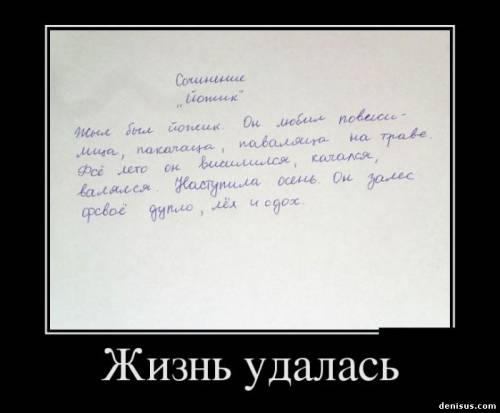 Сочинение
„Йожик"
Жыл был йожик. Он любил повеси-
лица, пакачаца, паваляца на траве.
Фсё лето он висилился, качался,
валялся. Наступила осень. Он залес
фсваё дупло, лёх и сдох.
Жизнь удалась
denisus.com